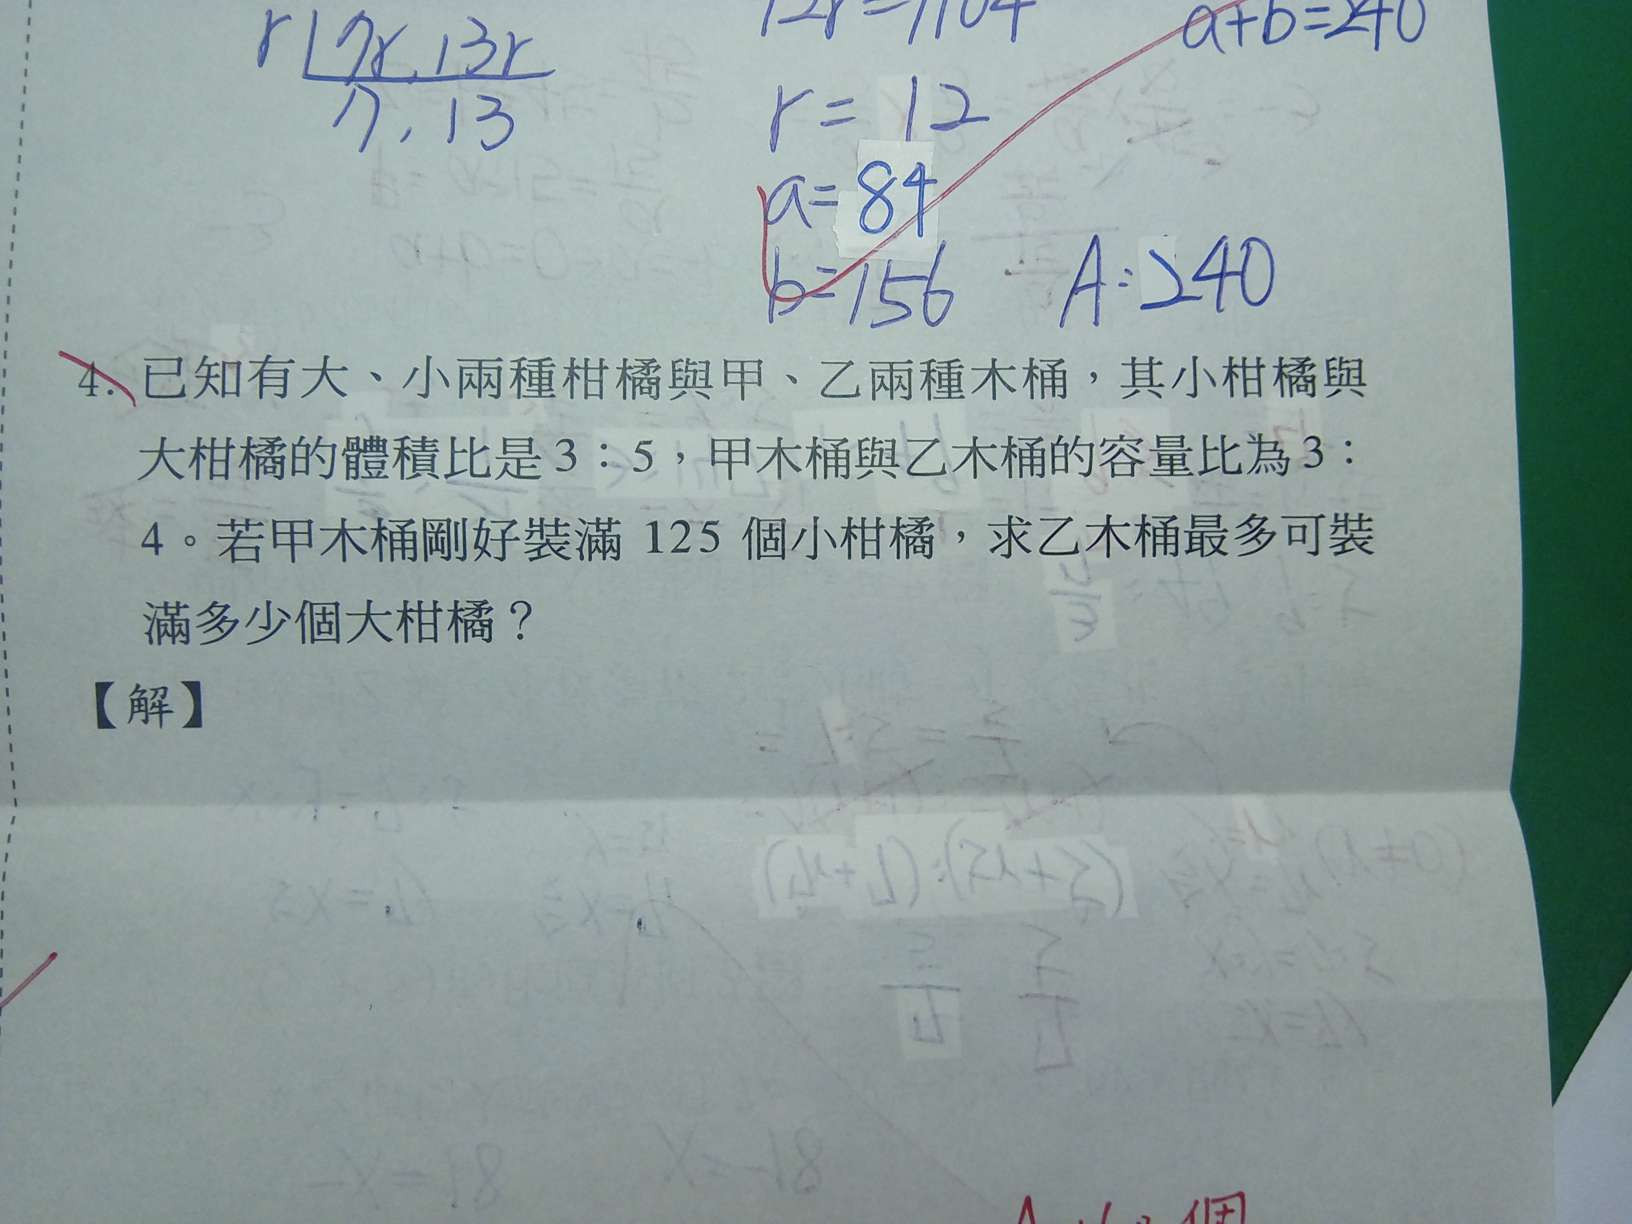 r 7r, 13r
7, 13
12r=1104
a+b=240
r=12
a=84
b=156 A:240
4. 已知有大、小兩種柑橘與甲、乙兩種木桶，其小柑橘與
大柑橘的體積比是3：5，甲木桶與乙木桶的容量比為3：
4。若甲木桶剛好裝滿 125 個小柑橘，求乙木桶最多可裝
滿多少個大柑橘？
【解】